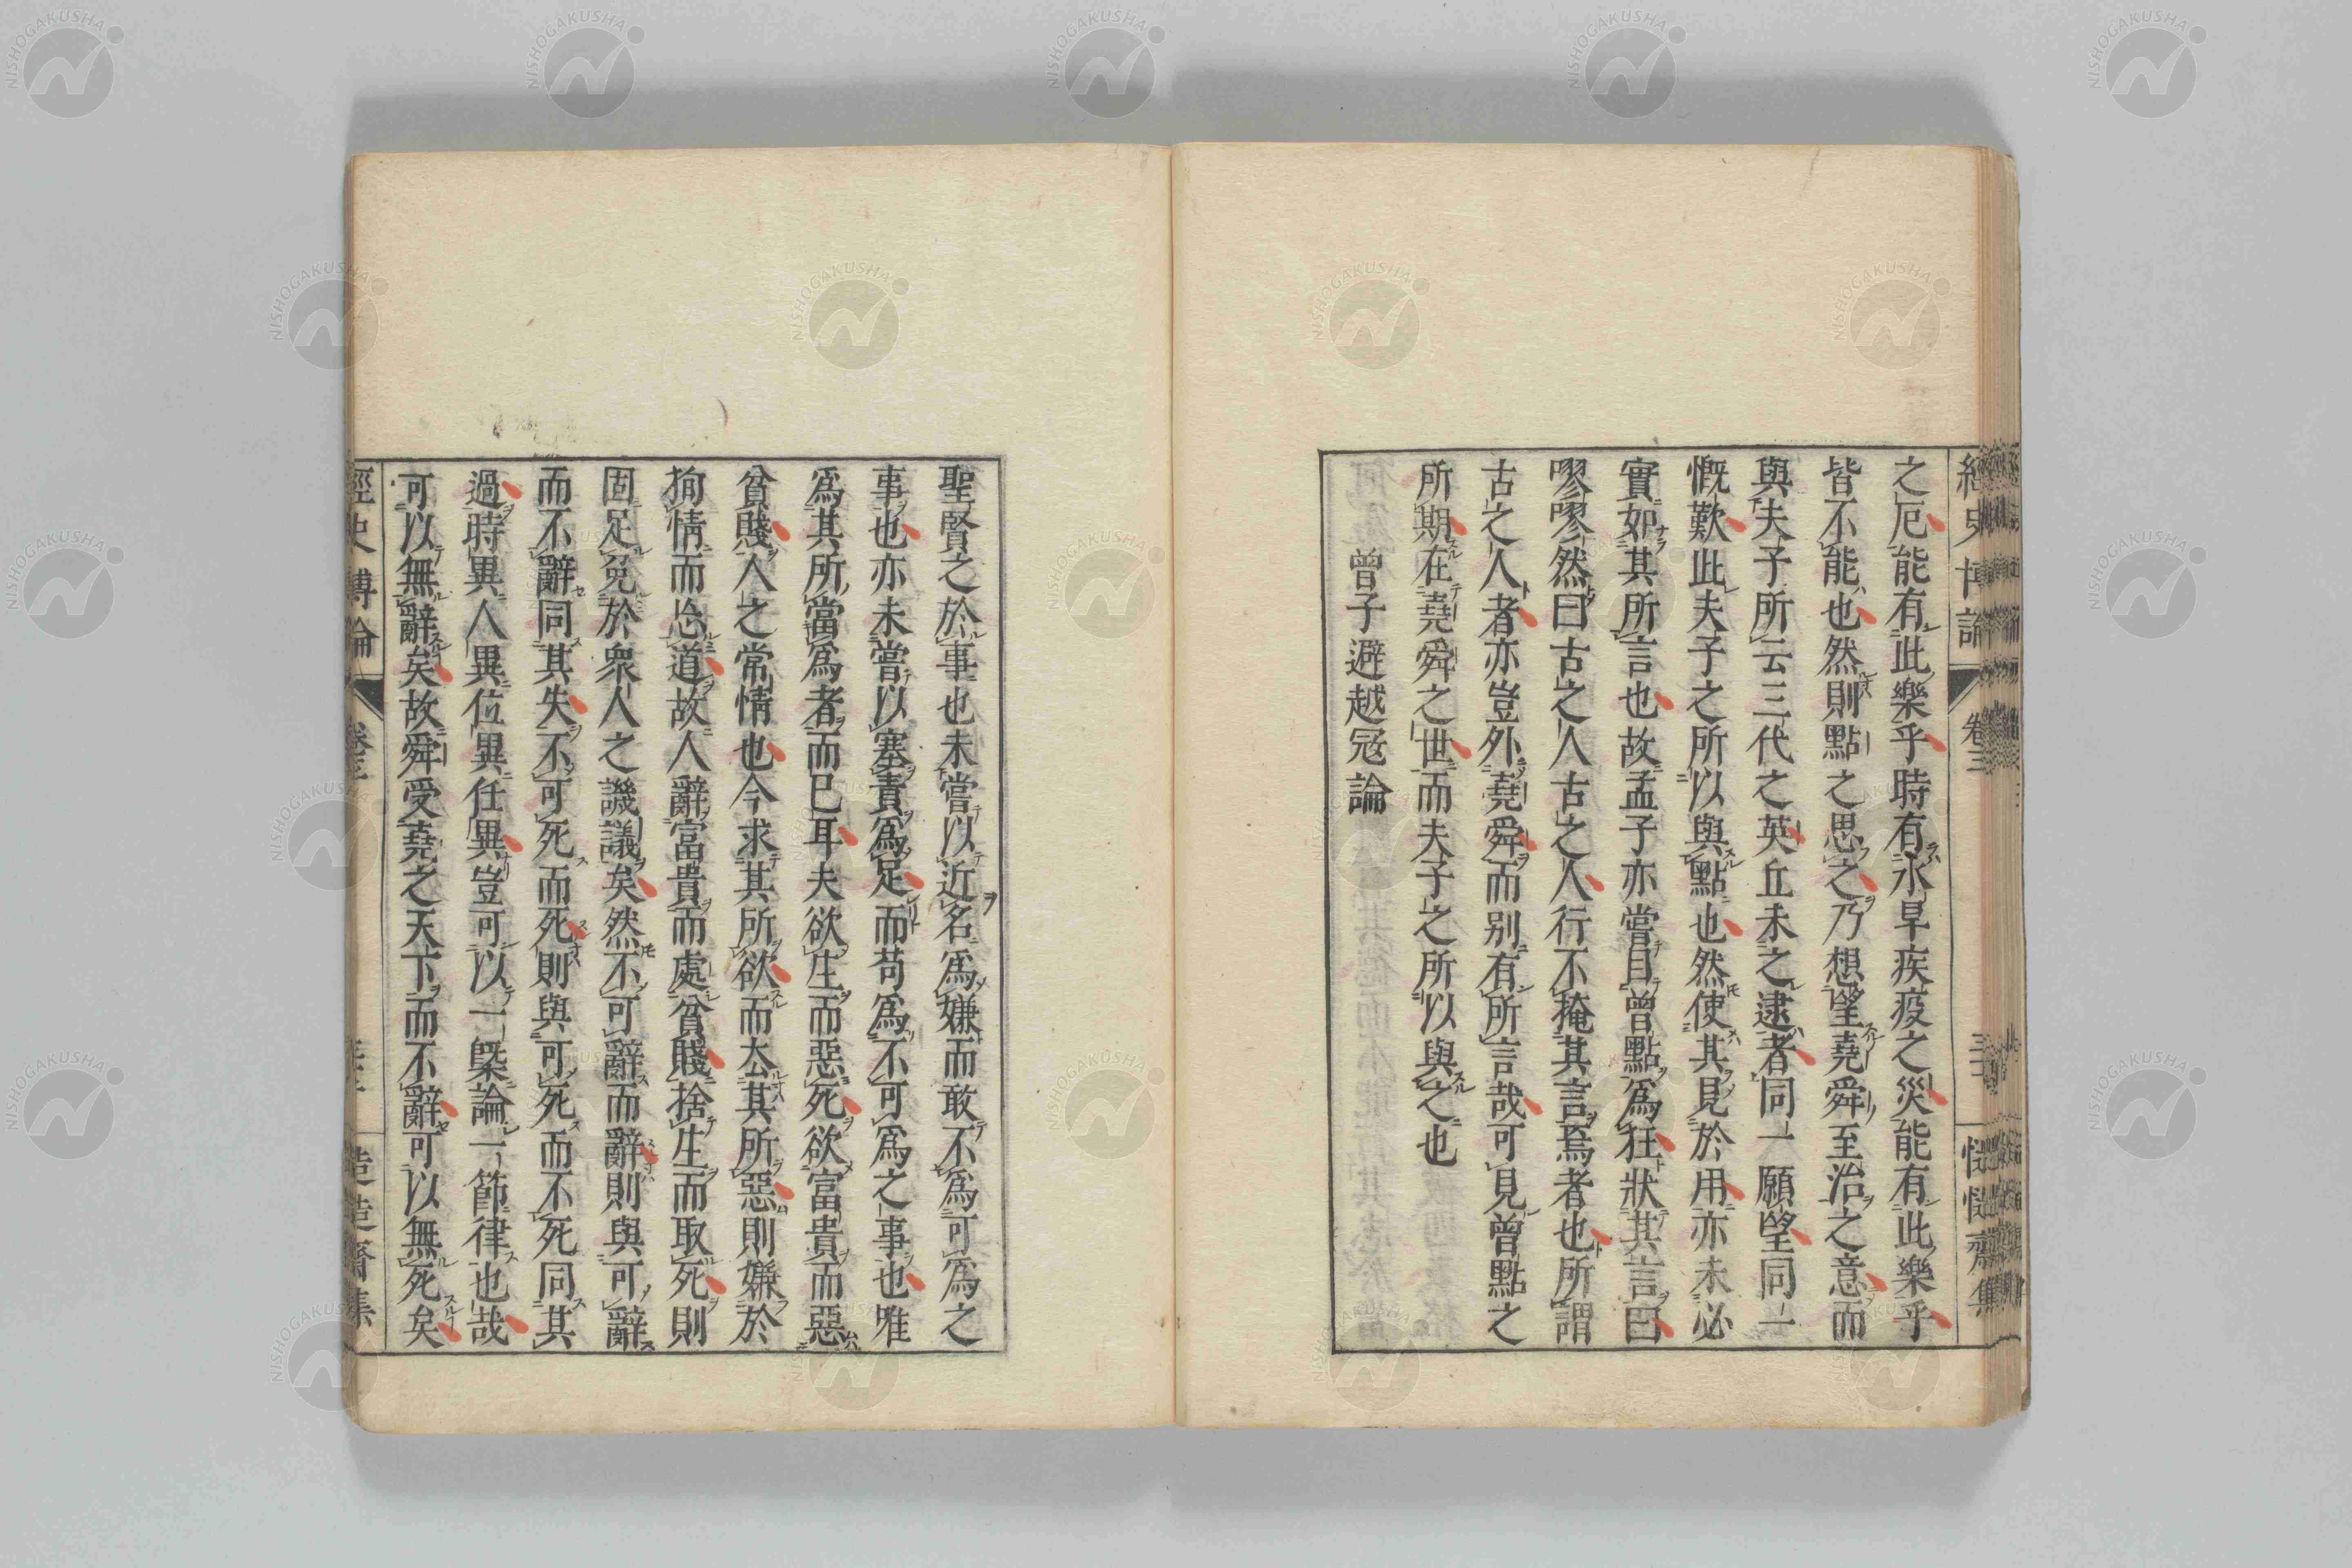 之厄能有此樂乎時有水旱疾疫之災能有此樂乎
皆不能也然則點之思之乃想望堯舜至治之意而
與夫子所云三代之英丘未之逮者同一願望同一
慨歎此夫子之所以與點也然使其見於用亦未必
實如其所言也故孟子亦嘗目曾點爲狂狀其言曰
嘐嘐然曰古之人古之人行不掩其言焉者也所謂
古之人者亦豈外堯舜而别有所言哉可見曾點之
所期在堯舜之世而夫子之所以與之也
曾子避越寇論
聖賢之於事也未嘗以近名爲嫌而敢不爲可爲之
事也亦未嘗以塞責爲足而苟爲不可爲之事也唯
爲其所當爲者而已耳夫欲生而惡死欲富貴而惡
貧賤人之常情也今求其所欲而去其所惡則嫌於
狥情而忘道故人辭富貴而處貧賤捨生而取死則
固足免於衆人之譏議矣然不可辭而辭則與可辭
而不辭同其失不可死而死則與可死而不死同其
過時異人異位異任異豈可以一槩論一節律也哉
可以無辭矣故舜受堯之天下而不辭可以無死矣
經史博論
卷三